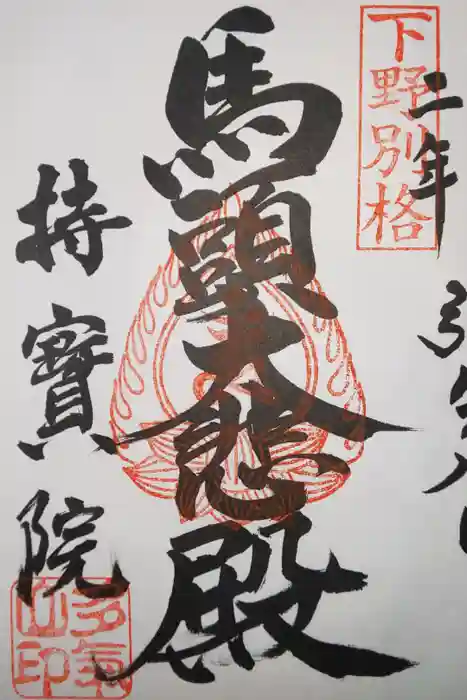 下野別格
二年
馬頭大悲殿
持寳院
多氣山印